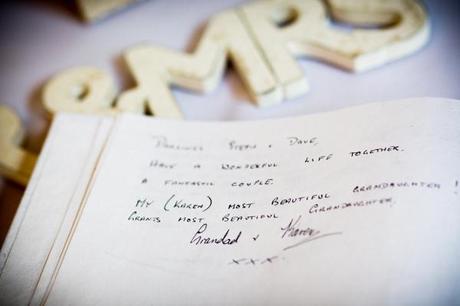 & MRS
Darlings Steph & Dave,
Have a wonderful life together.
A fantastic couple.
My (Karen) most beautiful grandaughter!
Grants most beautiful Grandaughter.
Grandad & Karen
xxx.